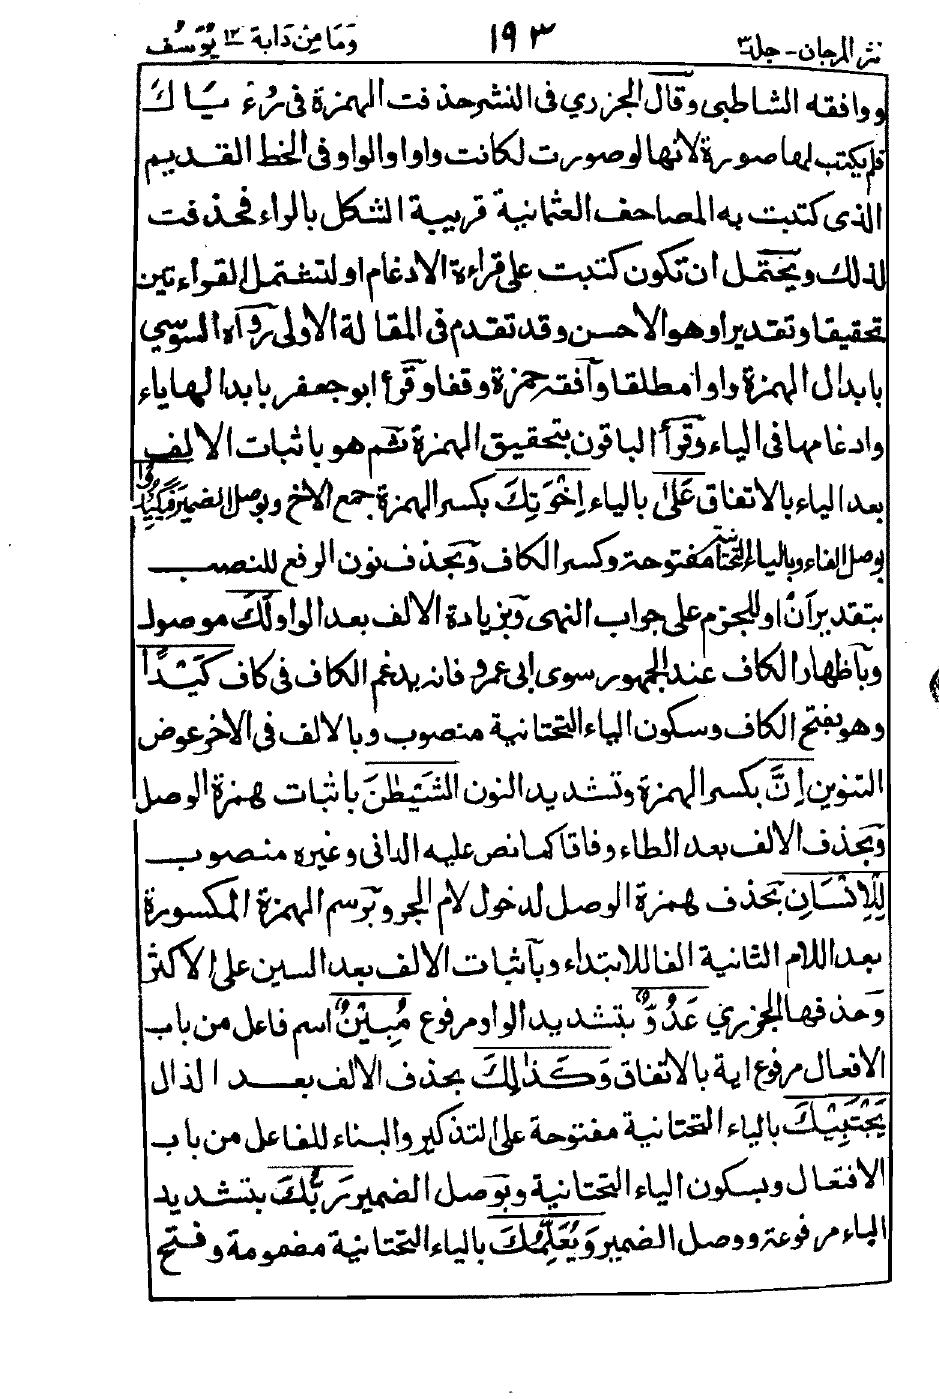 نثر المرجان - جلد ٣ ١٩٣ وَمَا مِنْ دَابة ١٢ يُوسُف
ووافقه الشاطبى وقال الجزري فى النشر حذفت الهمزة فى رُءْيَاكَ
فلم يكتب لها صورة لانها لو صورت لكانت واوا والواو فى الخط القديم
الذى كتبت به المصاحف العثمانية قريبة الشكل بالراء فحذفت
لذلك ويحتمل ان تكون كتبت على قراءة الادغام او لتشتمل القراءتين
تحقيقا وتقديرا وهو الاحسن وقد تقدم فى المقالة الاولى رواه السوسي
بابدال الهمزة واوا مطلقا وآفقه حمزة وقفا وقرأ ابو جعفر بابدالها ياء
وادغامها فى الياء وقرأ الباقون بتحقيق الهمزة ثم هو باثبات الالف
بعد الياء بالاتفاق عَلٰى بالياء اِخْوَتِكَ بكسر الهمزة جمع الاخ وبوصل الضمير فَيَكِيْدُوْا
بوصل الفاء وبالياء التحتانية مفتوحة وكسر الكاف وبحذف نون الرفع للنصب
بتقدير اَنْ او للجزم على جواب النهى وبزيادة الالف بعد الواو لَكَ موصول
وبآظهار الكاف عند الجمهور سوى ابى عمرو فانه يدغم الكاف فى كاف كَيْدًا
وهو بفتح الكاف وسكون الياء التحتانية منصوب وبالالف فى الاخر عوض
التنوين اِنَّ بكسر الهمزة وتشديد النون الشَّيْطٰنَ باثبات همزة الوصل
وبحذف الالف بعد الطاء وفاقا كما نص عليه الدانى وغيره منصوب
لِلْاِنْسَانِ بحذف همزة الوصل لدخول لام الجر وبرسم الهمزة المكسورة
بعد اللام الثانية الفا للابتداء وبآثبات الالف بعد السين على الاكثر
وحذفها الجزري عَدُوٌّ بتشديد الواو مرفوع مُبِيْنٌ اسم فاعل من باب
الافعال مرفوع اية بالاتفاق وَكَذٰلِكَ بحذف الالف بعد الذال
يَجْتَبِيْكَ بالياء التحتانية مفتوحة على التذكير والبناء للفاعل من باب
الافتعال وبسكون الياء التحتانية وبوصل الضمير رَبُّكَ بتشديد
الباء مرفوعة ووصل الضمير وَيُعَلِّمُكَ بالياء التحتانية مضمومة وفتح